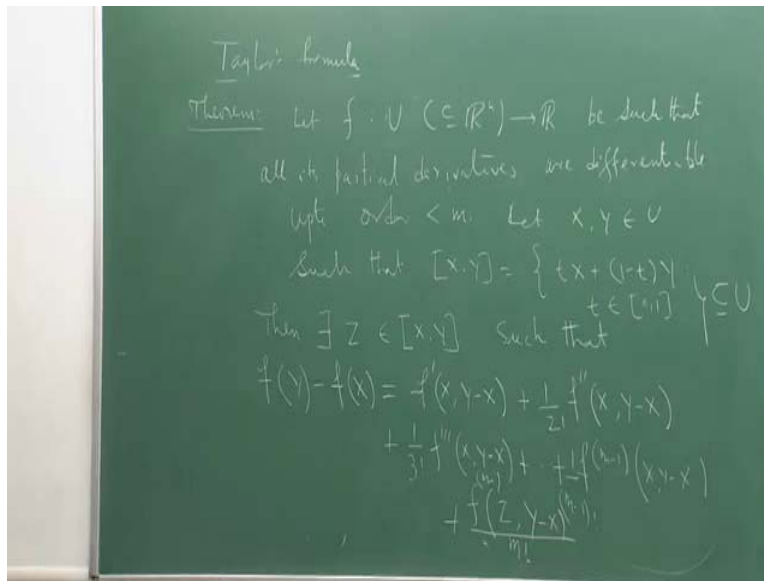 Taylor's formula
Theorem: Let f : U (⊆ ℝⁿ) → ℝ be such that
all its partial derivatives are differentiable
upto order < m. Let X, Y ∈ U
Such that [X,Y] = { tX + (1-t)Y
t ∈ [0,1] } ⊆ U
Then ∃ Z ∈ [X,Y] such that
f(Y) - f(X) = f'(X, Y-X) + 1/2! f''(X, Y-X)
+ 1/3! f'''(X, Y-X) + ... + 1/(m-1)! f^(m-1) (X, Y-X)
+ f^(m)(Z, Y-X) / m!